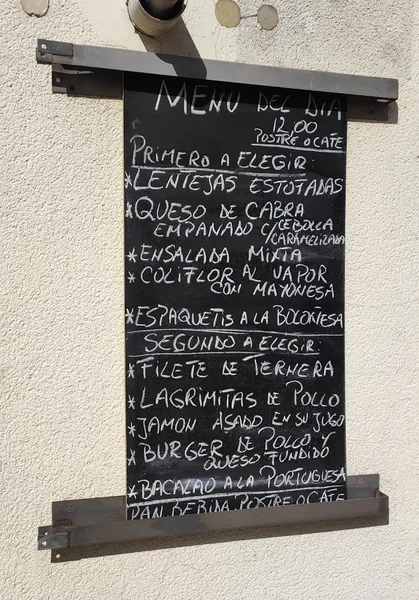 MENU DEL DIA
12,00
POSTRE O CAFE
PRIMERO A ELEGIR:
*LENTEJAS ESTOTADAS
*QUESO DE CABRA
EMPANADO C/CEBOLLA
CARAMELIZADA
*ENSALADA MIXTA
*COLIFLOR AL VAPOR
CON MAYONESA
*ESPAQUETIS A LA BOLOÑESA
SEGUNDO A ELEGIR:
*FILETE DE TERNERA
*LAGRIMITAS DE POLLO
*JAMON ASADO EN SU JUGO
*BURGER DE POLLO Y
QUESO FUNDIDO
*BACALAO A LA PORTUGUESA
PAN BEBIDA POSTRE O CAFE